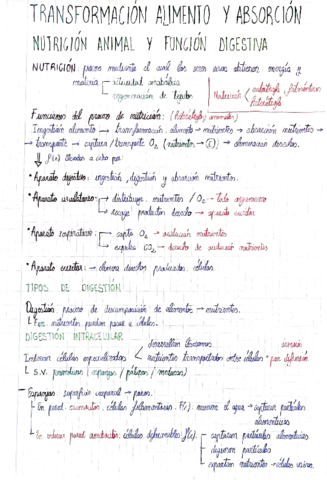 TRANSFORMACIÓN ALIMENTO Y ABSORCIÓN
NUTRICIÓN ANIMAL Y FUNCIÓN DIGESTIVA
NUTRICIÓN: proceso mediante el cual los seres vivos obtienen energía y
materia
actividad anabólica
regeneración de tejidos
Nutrición
autótrofa
heterótrofa
Funciones del proceso de nutrición: (Heterótrofo animales)
Ingestión alimento → transformación alimento → nutrientes → absorción nutrientes →
→ transporte → captura / transporte O₂ (nutrientes → ) → eliminación desechos.
llevadas a cabo por:
• Aparato digestivo: ingestión, digestión y absorción nutrientes.
• Aparato circulatorio:
distribuye nutrientes / O₂ → todo organismo
recoge productos desecho → aparato excretor
• Aparato respiratorio:
capta O₂ → oxidación nutrientes
expulsa CO₂ → desecho de oxidación nutrientes
• Aparato excretor: → elimina desechos producidos células.
TIPOS DE DIGESTIÓN
Digestión: proceso de descomposición de alimentos → nutrientes.
nutrientes puedan pasar a células.
DIGESTIÓN INTRACELULAR
células especializadas
desarrollan lisosomas
nutrientes transportados entre células * por difusión
S.V. primitivos (esponjas / pólipos / medusas)
Esponjas: superficie corporal → poros.
células flageladas
mueven el agua → capturar partículas
alimenticias
células
capturan partículas alimenticias
digieren partículas
nutrientes → células vecinas.